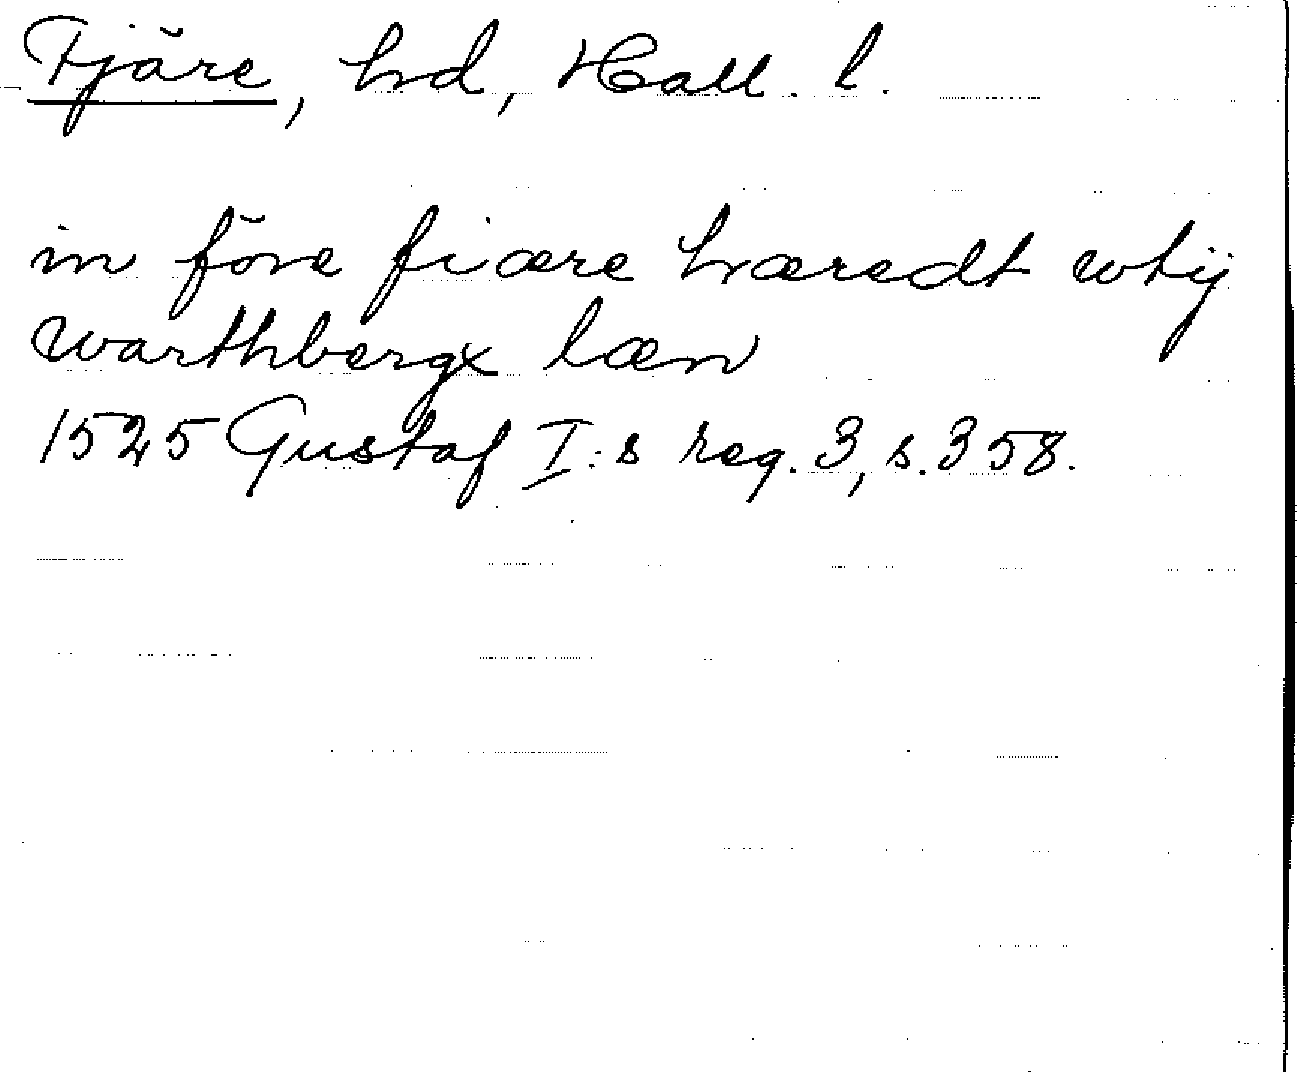 Fjäre, hd, Hall. l.
in före fiære hæredt wtij
warthbergx læn
1525 Gustaf I:s reg. 3, s. 358.